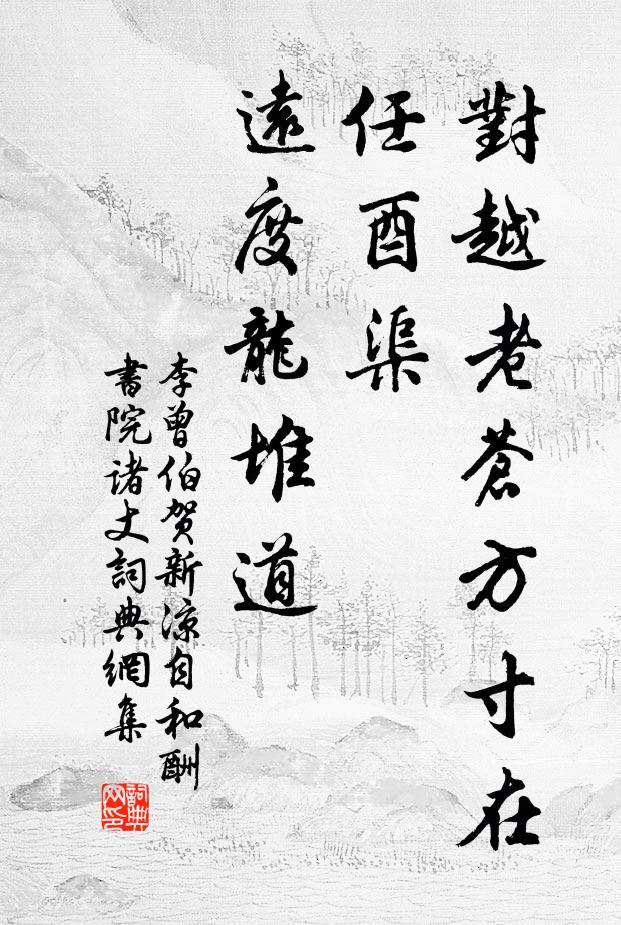 對越老蒼方寸在
任酉渠
遠度龍堆道
李曾伯贺新涼自和酬
書院诸丈詞典網集
詞典网印